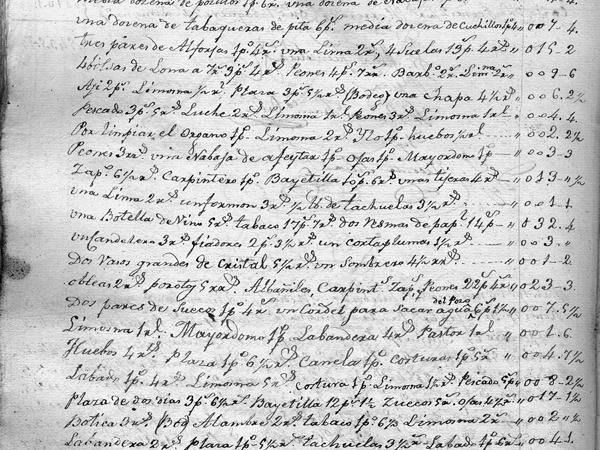 media dozena de
vna dozena de tabaqueras de pita 6p.s media dozena de Cuchillos 1p.4 " 007-4.
tres pares de Alforjas 1p.4r.s vna Lima 2r.s, 4 Suelas 13p.s 4r.s " 015-2
4 bilsas de Lona a 7r.s 3p.s 4r.s Peones 4p.s 7r.s Barb.o 2r.s Lim.na 2r.s " 009-6
Aji 2p.s Limosna ½r.l Plaza 3p.s 5½r.s (Bodeg) vna chapa 4½r.s " 006.2½
Pescado 3p.s 5r.s Luche 2r.s Limosna 1r.l Peones 3r.s Limosna 1r.l " 004.4.
Por limpiar el Organo 1p.o Limosna 2r.s Ylo 1p.o huebos ½r.l " 002.2½
Peones 3r.s vna Nabaja de afeytar 1p.o Ojas 1p.o Mayordomo 1p.o " 003-3
Zap.o 6½r.s Carpintero 1p.o Bayetilla 10p.s 6r.s vnas tijeras 4r.s " 013-"½
vna Lima 2r.s vn formon 3r.s ½ lb. de tachuelas 3½r.s " 001-1.
vna Botella de Vino 5r.s tabaco 17p.s 7r.s dos Resmas de pap.l 14p.s " 032.4.
vn Candelero 3r.s fiadores 2p.s 3½r.s un cortaplumas 1½r.s " 003."
Dos Vasos grandes de Cristal 5½r.s vn Sombrero 4½r.s " 001-2.
obleas 2r.s poroty 5r.s Albañiles Carpint.o Zap.o Peones 22p.s 4r.s " 023-3.
Dos pares de Suecos 1p.o 4r.s vn Cordel para Sacar agua del Pozo 6p.s 1½ " 007.5½
Limosna 1r.l Mayordomo 1p.o Labandera 4r.s Pastor 1r.l " 001.6.
Huebos 4r.s Plaza 1p.o 6½r.s Canela 1p.o Costuras 1p.o 5r.s " 004.7½
Labado 1p.o 4r.s Limosna 5r.s costura 1p.o Limosna 1½r.s Pescado 5p.s " 008-2½
Plaza de dos dias 3p.s 6½r.s Bayetilla 12p.s 1½ Zuecos 5r.s Ojas 4½r.s " 017-1½
Botica 3r.s (Bod) Alambre 2r.s tabaco 1p.o 6½ Limosna 2r.s " 002."½
Labandera 2r.s Plaza 1p.o 5½r.s tachuelas 3½r.s Labado 1p.o 6r.s " 004-1.